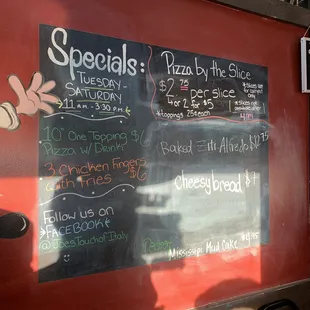 Specials:
TUESDAY -
SATURDAY
11 AM - 3:30 PM
10" One Topping
Pizza w/ Drink $6
3 Chicken Fingers
with fries $6
Follow us on
FACEBOOK
@JoesTouchofItaly
Pizza by the Slice
$2.75 per slice
4 or 2 for $5
+toppings 25¢ each
4PM
Baked Ziti Alfredo
Cheesybread $
Mississippi Mud Cake